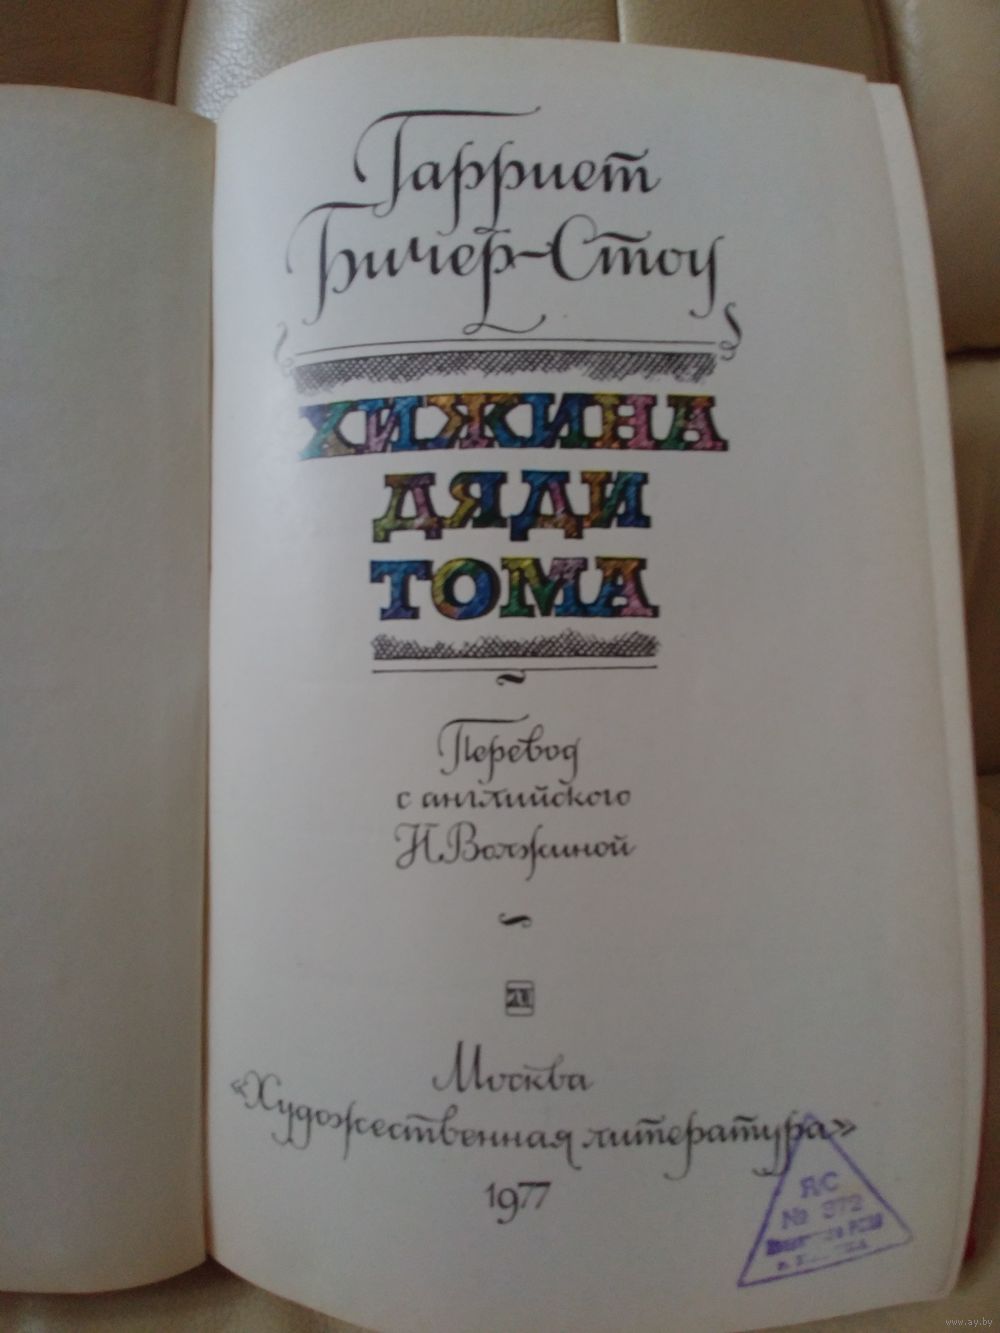 Гарриет
Бичер-Стоу
ХИЖИНА
ДЯДИ
ТОМА
Перевод
с английского
Н. Волжиной
Москва
«Художественная литература»
1977
Я/С
№ 372
www.ay.by